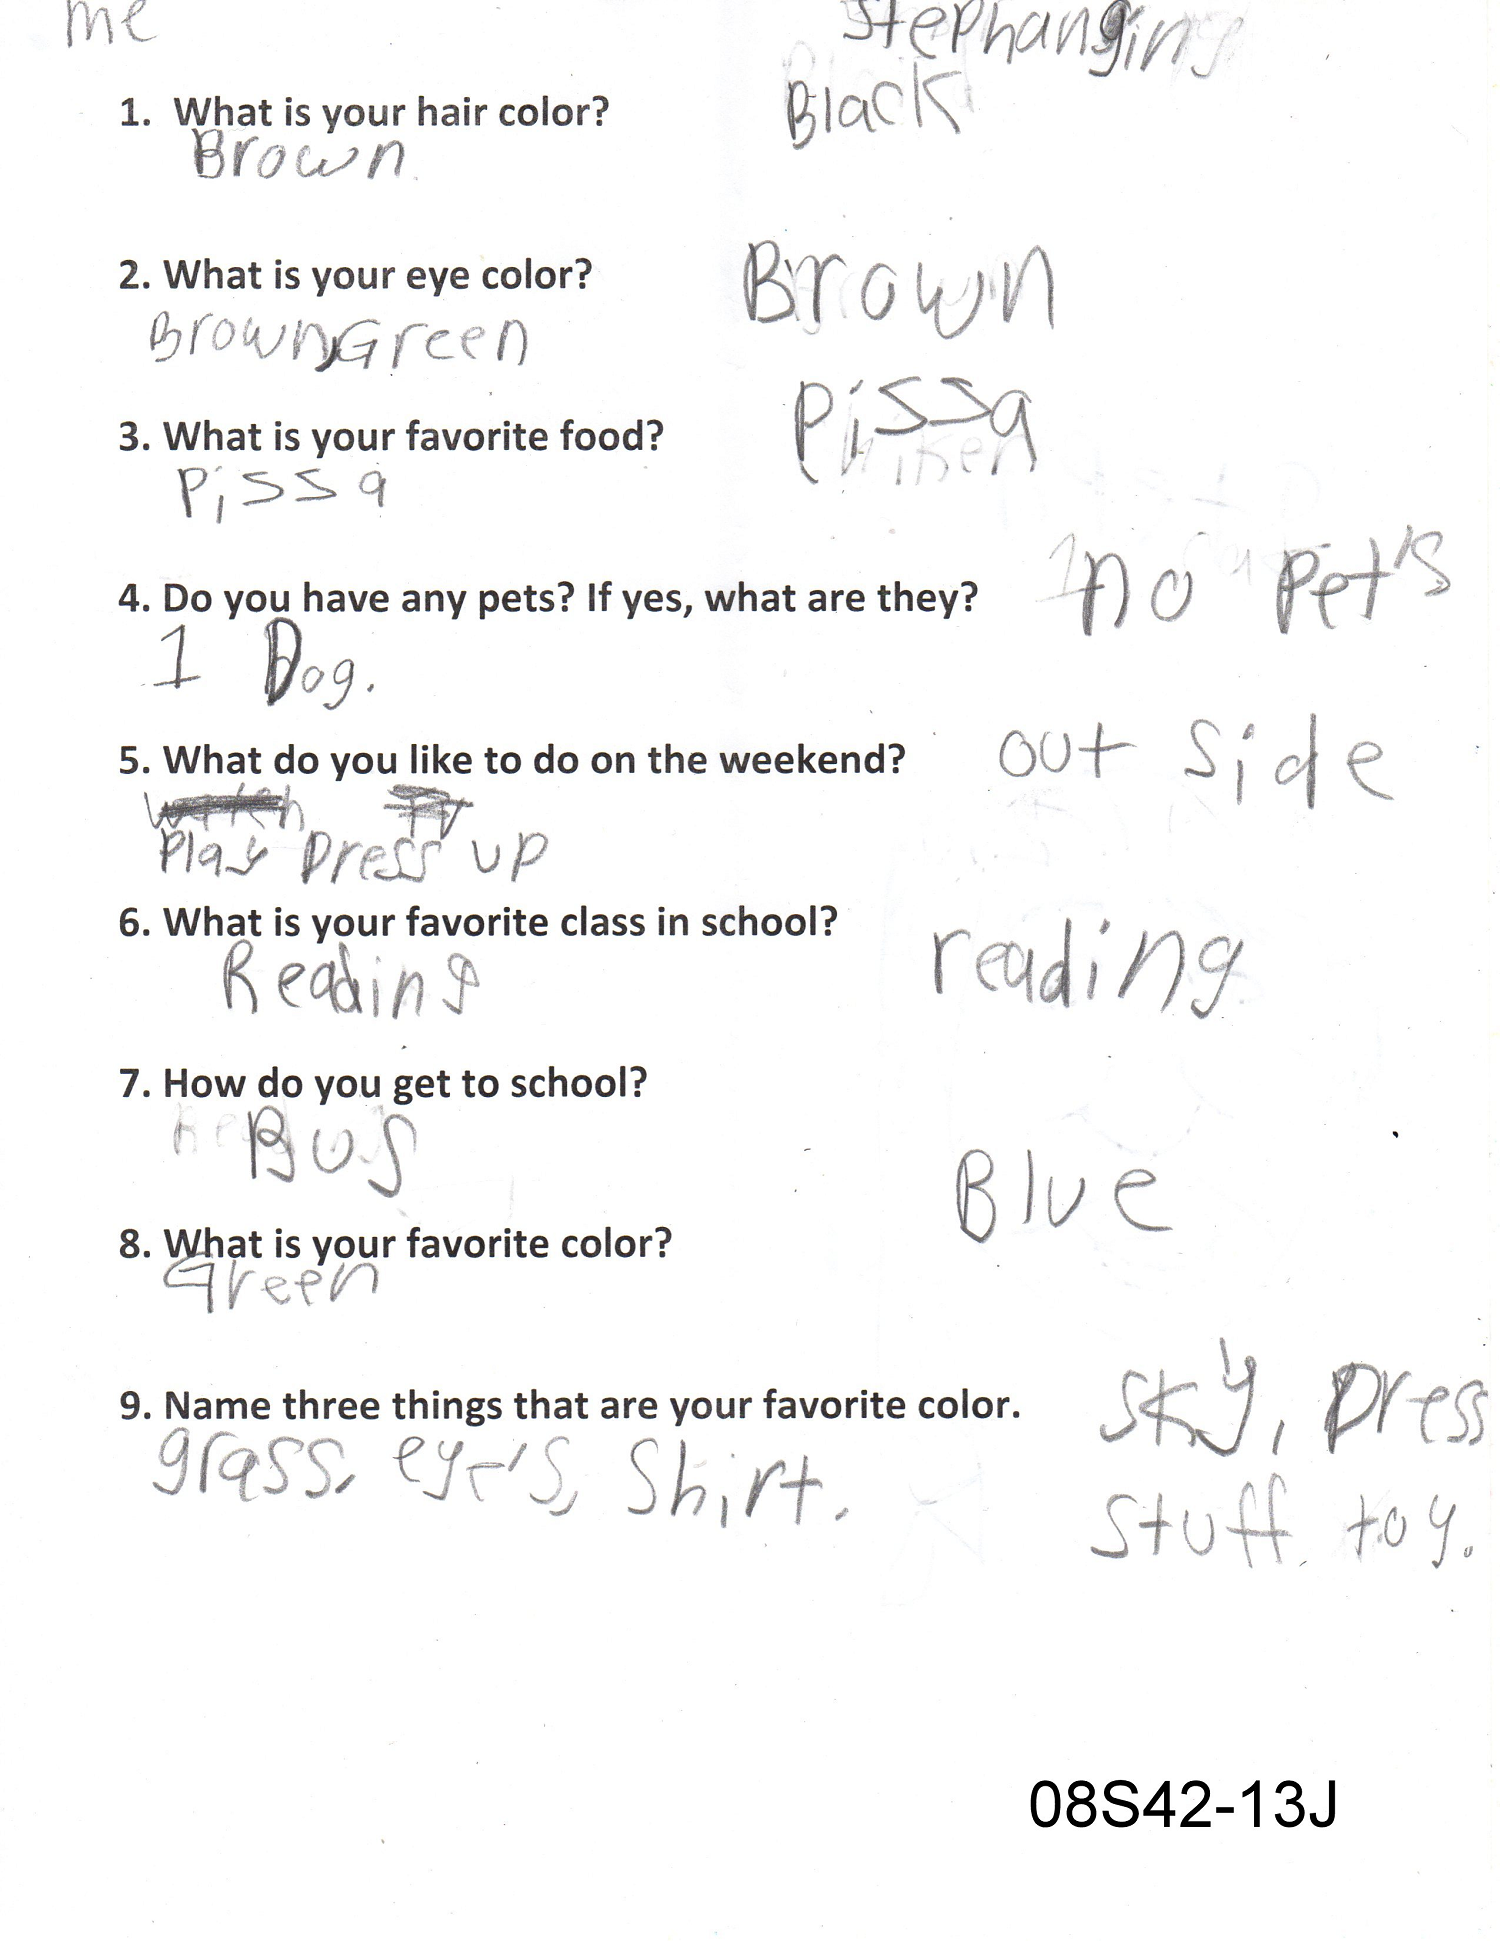 me Stephanging
1. What is your hair color? Black
Brown
2. What is your eye color? Brown
Brown,Green
3. What is your favorite food? Pissa
Pissa
4. Do you have any pets? If yes, what are they? no Pet's
1 Dog.
5. What do you like to do on the weekend? out side
Watch TV
Play Dress up
6. What is your favorite class in school? reading
Reading
7. How do you get to school?
Bus
Blue
8. What is your favorite color?
Green
9. Name three things that are your favorite color. sky, Dress
grass, eye's, Shirt. Stuff toy.
08S42-13J